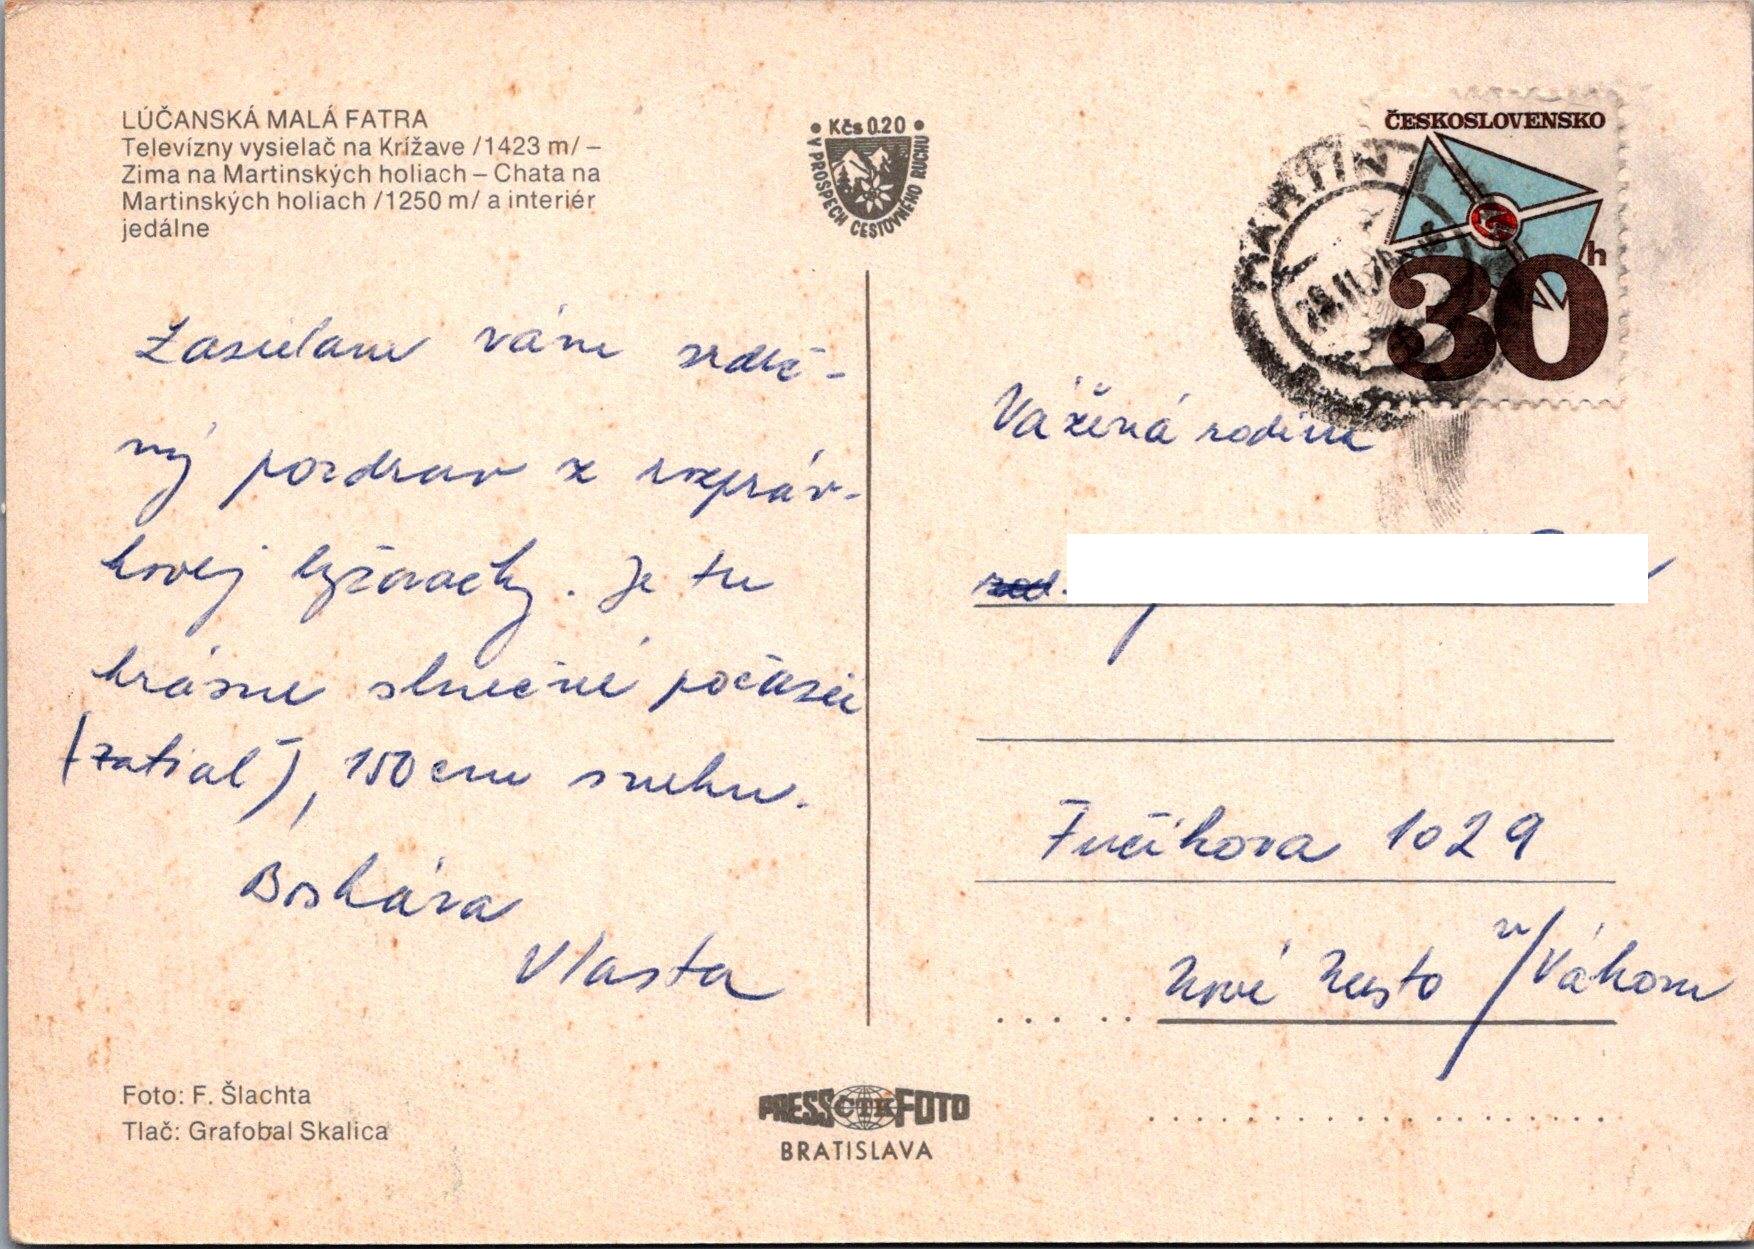 LÚČANSKÁ MALÁ FATRA
Televízny vysielač na Krížave /1423 m/ –
Zima na Martinských holiach – Chata na
Martinských holiach /1250 m/ a interiér
jedálne
• Kčs 0.20 •
V PROSPECH CESTOVNÉHO RUCHU
ČESKOSLOVENSKO
30 h
MARTIN 1
Zasielam vám srdeč-
ný pozdrav z rozpráv-
kovej lyžovačky. Je tu
krásne slnečné počasie
(zatiaľ), 150 cm snehu.
Boskára
Vlasta
Vážená rodina
Fučíkova 1029
Nové Mesto n/Váhom
Foto: F. Šlachta
Tlač: Grafobal Skalica
PRESSČTKFOTO
BRATISLAVA